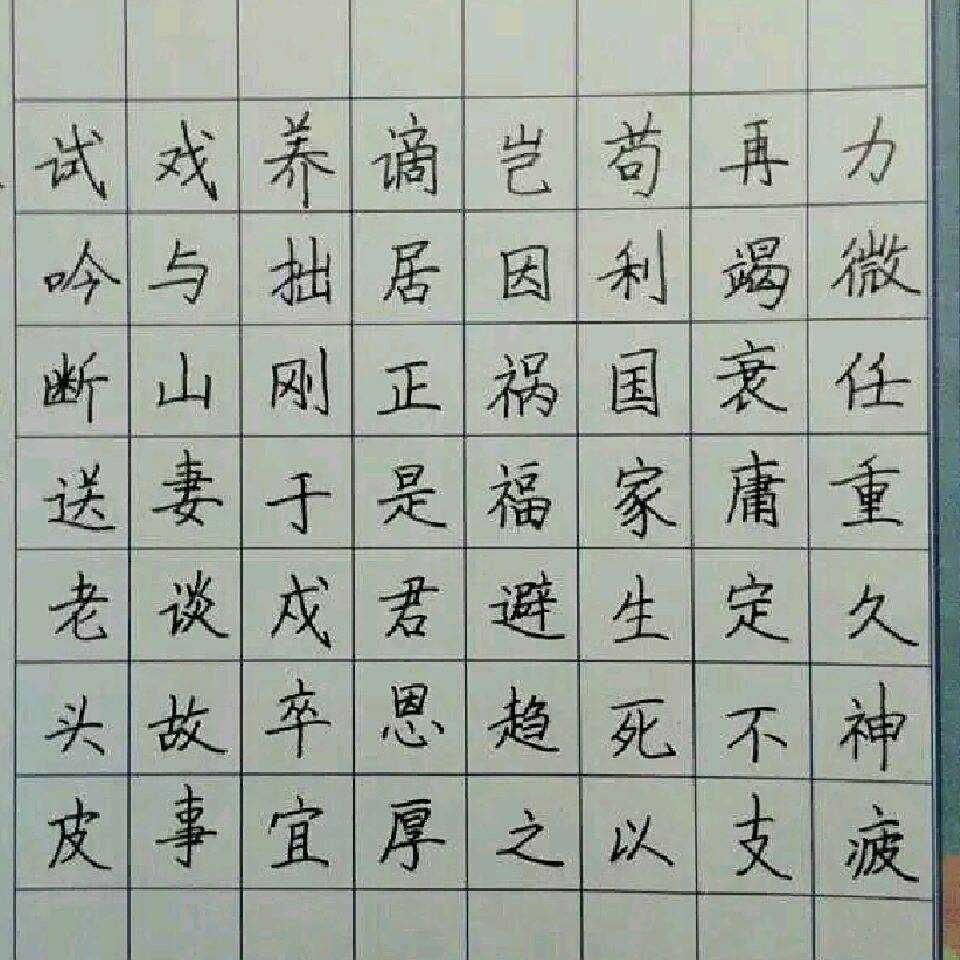 力微任重久神疲
再竭衰庸定不支
苟利国家生死以
岂因祸福避趋之
谪居正是君恩厚
养拙刚于戍卒宜
戏与山妻谈故事
试吟断送老头皮